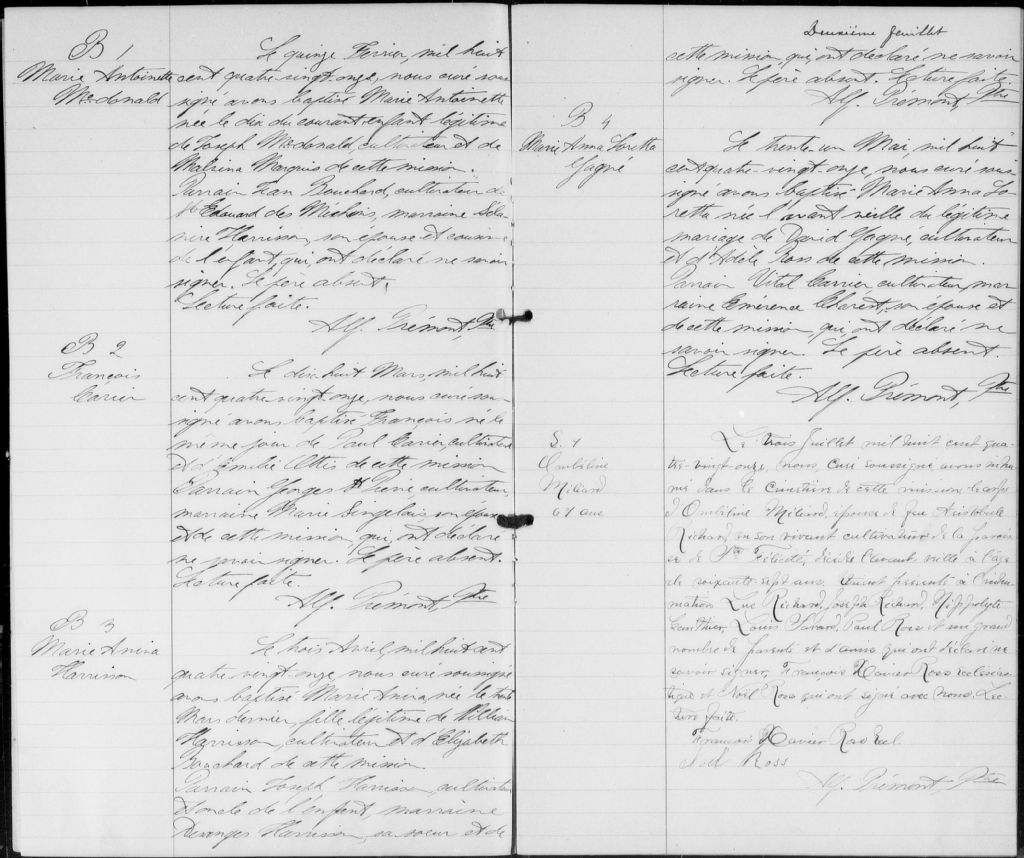 B 1
Marie Antoinette
McDonald
Le quinze Février, mil huit
cent quatre-vingt-onze, nous curé sous
signé avons baptisé Marie Antoinette
née le dix du courant, enfant légitime
de Joseph McDonald, cultivateur et de
Malvina Marquis de cette mission.
Parrain Jean Bouchard, cultivateur de
St Edouard des Méchins, marraine Séla-
nire Harrisson, son épouse et cousine
de l'enfant, qui, ont déclaré ne savoir
signer. Le père absent.
Lecture faite.
Alf. Prémont, Ptre
B 2
François
Carier
Le dix-huit Mars, mil huit
cent quatre-vingt-onze, nous curé sous
signé avons baptisé François né le
même jour de Paul Carier, cultivateur
et d'Emélie Ottis de cette mission
Parrain Georges St Pierre cultivateur,
marraine Marie Singelais, son épouse
et de cette mission, qui, ont déclaré
ne savoir signer. Le père absent.
Lecture faite.
Alf. Prémont, Ptre
B 3
Marie Anina
Harrisson
Le trois Avril, mil huit cent
quatre-vingt-onze, nous curé soussigné
avons baptisé Marie Anina, née le huit
Mars dernier, fille légitime de William
Harrisson, cultivateur et d'Elizabeth
Bouchard de cette mission.
Parrain Joseph Harrisson, cultivateur
et oncle de l'enfant, marraine
Harrisson, sa soeur et de
Deuxième feuillet
cette mission, qui, ont déclaré ne savoir
signer. Le père absent. Lecture faite.
Alf. Prémont, Ptre
B 4
Marie Anna Loretta
Gagné
Le trente-un Mai, mil huit
cent quatre-vingt-onze, nous curé sous-
signé avons baptisé Marie Anna Lo-
retta née l'avant veille du légitime
mariage de David Gagné, cultivateur
et d'Adèle Ross de cette mission.
Parrain Vital Carrier, cultivateur, mar-
raine Emérence Charest, son épouse et
de cette mission, qui, ont déclaré ne
savoir signer. Le père absent.
Lecture faite.
Alf. Prémont, Ptre
S. 1
Ombéline
Miliard
67 ans
Le trois Juillet mil huit cent qua-
tre-vingt-onze, nous, curé soussigné, avons inhu-
mé dans le cimetière de cette mission, le corps
d'Ombéline Miliard, épouse de feu Aristobule
Richard, en son vivant cultivateur de la parois-
se de Ste Félicité, décédée l'avant veille à l'âge
de soixante-sept ans. Etaient présents à l'inhu-
mation Luc Richard, Joseph Richard, Hippolyte
Gauthier, Louis Savard, Paul Ross et un grand
nombre de parents et d'amis qui ont déclaré ne
savoir signer, François Xavier Ross ecclésias-
tique et Noël Ross qui ont signé avec nous. Lec-
ture faite.
François Xavier Ross Eccl.
Noël Ross
Alf. Prémont, Ptre